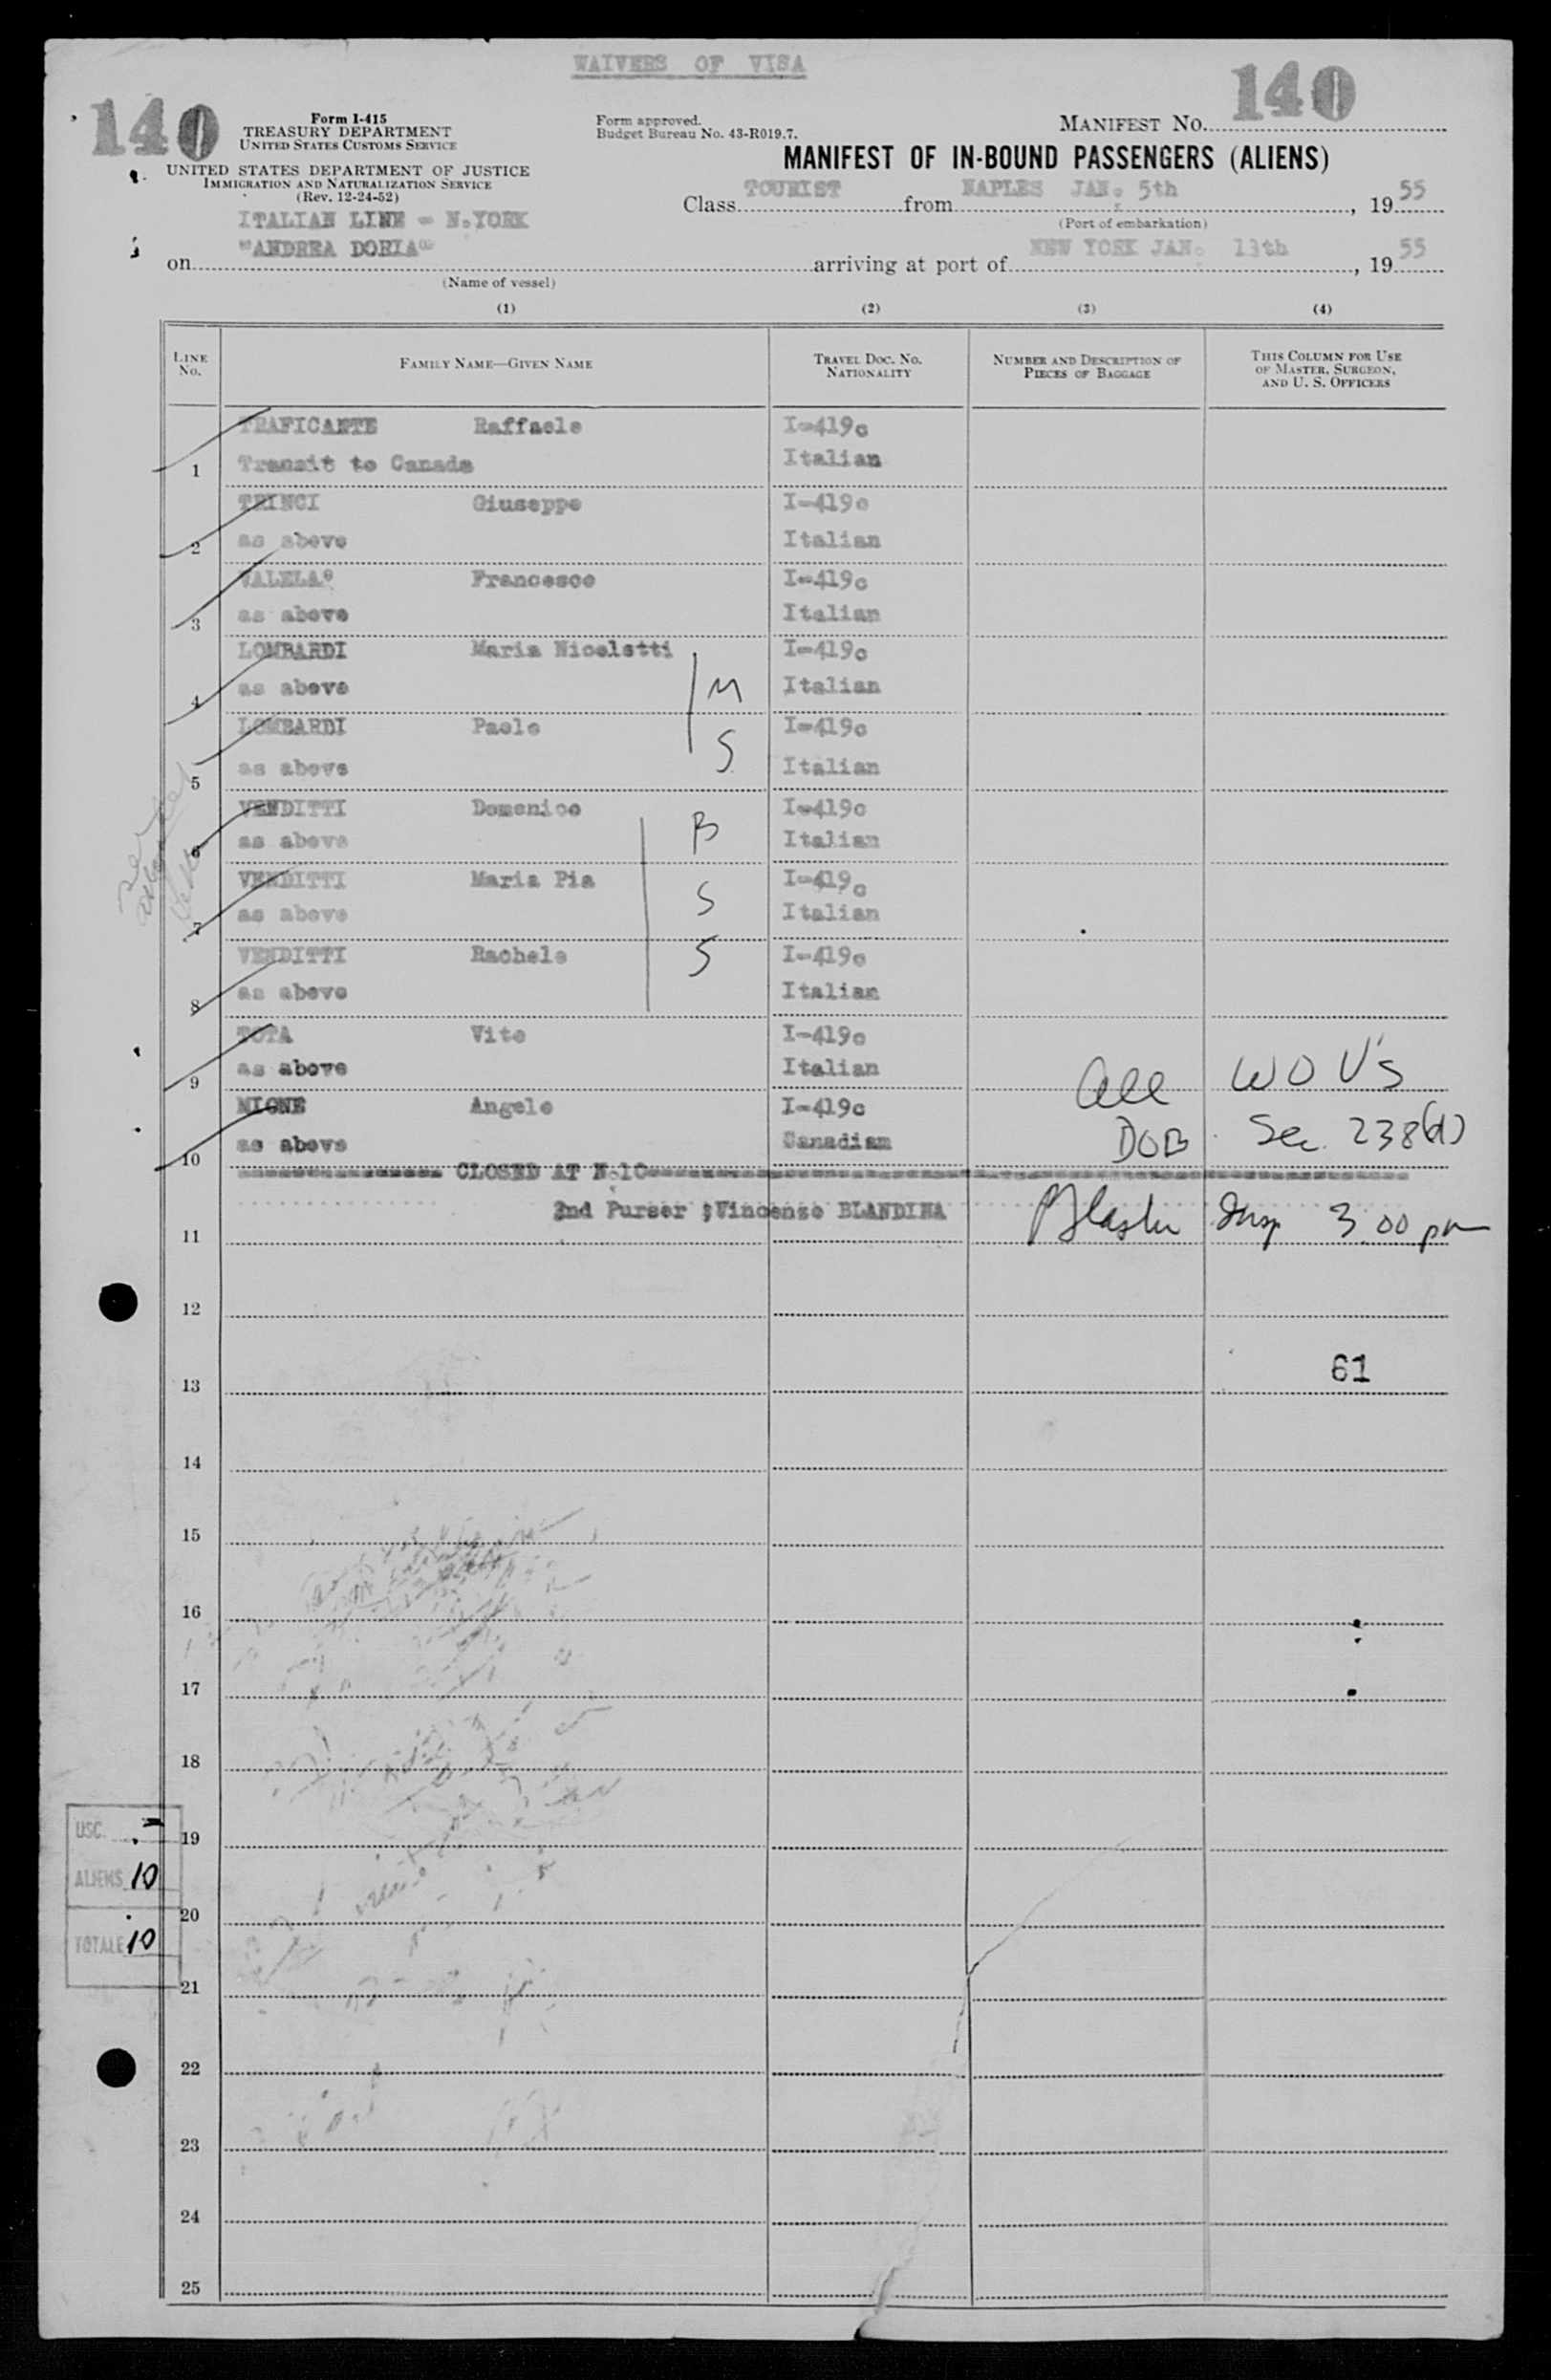 WAIVERS OF VISA
140
140
Form I-415
TREASURY DEPARTMENT
UNITED STATES CUSTOMS SERVICE
Form approved.
Budget Bureau No. 43-R019.7.
MANIFEST No.
UNITED STATES DEPARTMENT OF JUSTICE
IMMIGRATION AND NATURALIZATION SERVICE
(Rev. 12-24-52)
MANIFEST OF IN-BOUND PASSENGERS (ALIENS)
Class TOURIST from NAPLES JAN. 5th, 19 55
(Port of embarkation)
ITALIAN LINE - N.YORK
on "ANDREA DORIA" arriving at port of NEW YORK JAN. 13th, 19 55
(Name of vessel)
(1) (2) (3) (4)
LINE No. FAMILY NAME—GIVEN NAME TRAVEL DOC. No. NATIONALITY NUMBER AND DESCRIPTION OF PIECES OF BAGGAGE THIS COLUMN FOR USE OF MASTER, SURGEON, AND U. S. OFFICERS
TRAFICANTE Raffaele I-419c
1 Transit to Canada Italian
TRINCI Giuseppe I-419c
2 as above Italian
Francesco I-419c
3 as above Italian
LOMBARDI Maria Nicoletti I-419c
4 as above M Italian
LOMBARDI Paolo I-419c
5 as above S Italian
VENDITTI Domenico I-419c
6 as above B Italian
VENDITTI Maria Pia I-419c
7 as above S Italian
VENDITTI Rachele S I-419c
8 as above Italian
TOTA Vito I-419c
9 as above Italian All WOV's
MIONE Angelo I-419c
10 as above Canadian DOB Sec. 238(d)
CLOSED AT N.10
2nd Purser ;Vincenzo BLANDINA
11 Insp 3.00 pm
12
13 61
14
15
16
17
18
USC. -
19
ALIENS 10
20
TOTALE 10
21
22
23
24
25